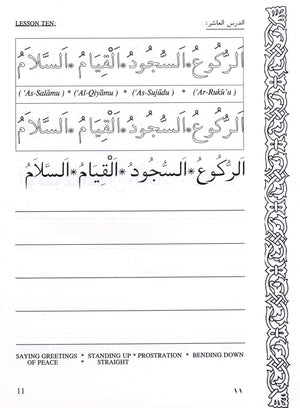 LESSON TEN: الدرس العاشر:
اَلرُّكُوعُ * اَلسُّجُودُ * اَلْقِيَامُ * اَلسَّلاَمُ
( 'As-Salāmu ) * ('Al-Qiyāmu ) * ('As-Sujūdu ) * ('Ar-Rukū'u )
اَلرُّكُوعُ * اَلسُّجُودُ * اَلْقِيَامُ * اَلسَّلاَمُ
اَلرُّكُوعُ * اَلسُّجُودُ * اَلْقِيَامُ * اَلسَّلاَمُ
SAYING GREETINGS * STANDING UP * PROSTRATION * BENDING DOWN
OF PEACE * STRAIGHT
11 ١١